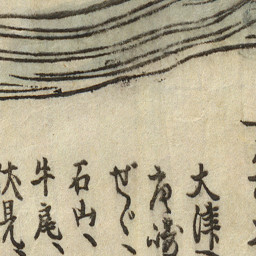 大津
唐崎
ぜゞ、
石山、
牛尾、
伏見、